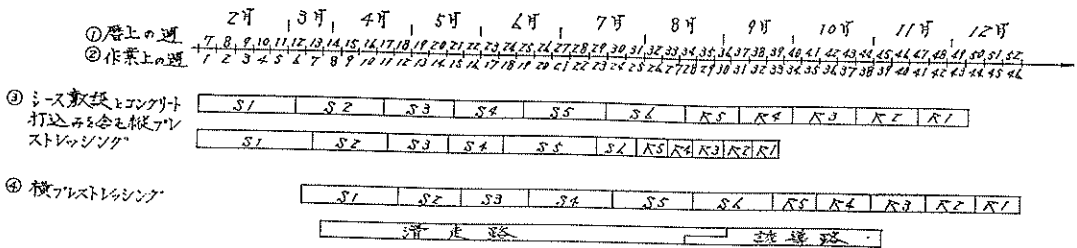 2月 3月 4月 5月 6月 7月 8月 9月 10月 11月 12月
①暦上の週 7 8 9 10 11 12 13 14 15 16 17 18 19 20 21 22 23 24 25 26 27 28 29 30 31 32 33 34 35 36 37 38 39 40 41 42 43 44 45 46 47 48 49 50 51 52
②作業上の週 1 2 3 4 5 6 7 8 9 10 11 12 13 14 15 16 17 18 19 20 21 22 23 24 25 26 27 28 29 30 31 32 33 34 35 36 37 38 39 40 41 42 43 44 45 46
③シース敷設とコンクリート
S1 S2 S3 S4 S5 S6 R5 R4 R3 R2 R1
打込みを含む縦プレ
ストレッシング
S1 S2 S3 S4 S5 S6 R5 R4 R3 R2 R1
④横プレストレッシング
S1 S2 S3 S4 S5 S6 R5 R4 R3 R2 R1
滑走路 誘導路